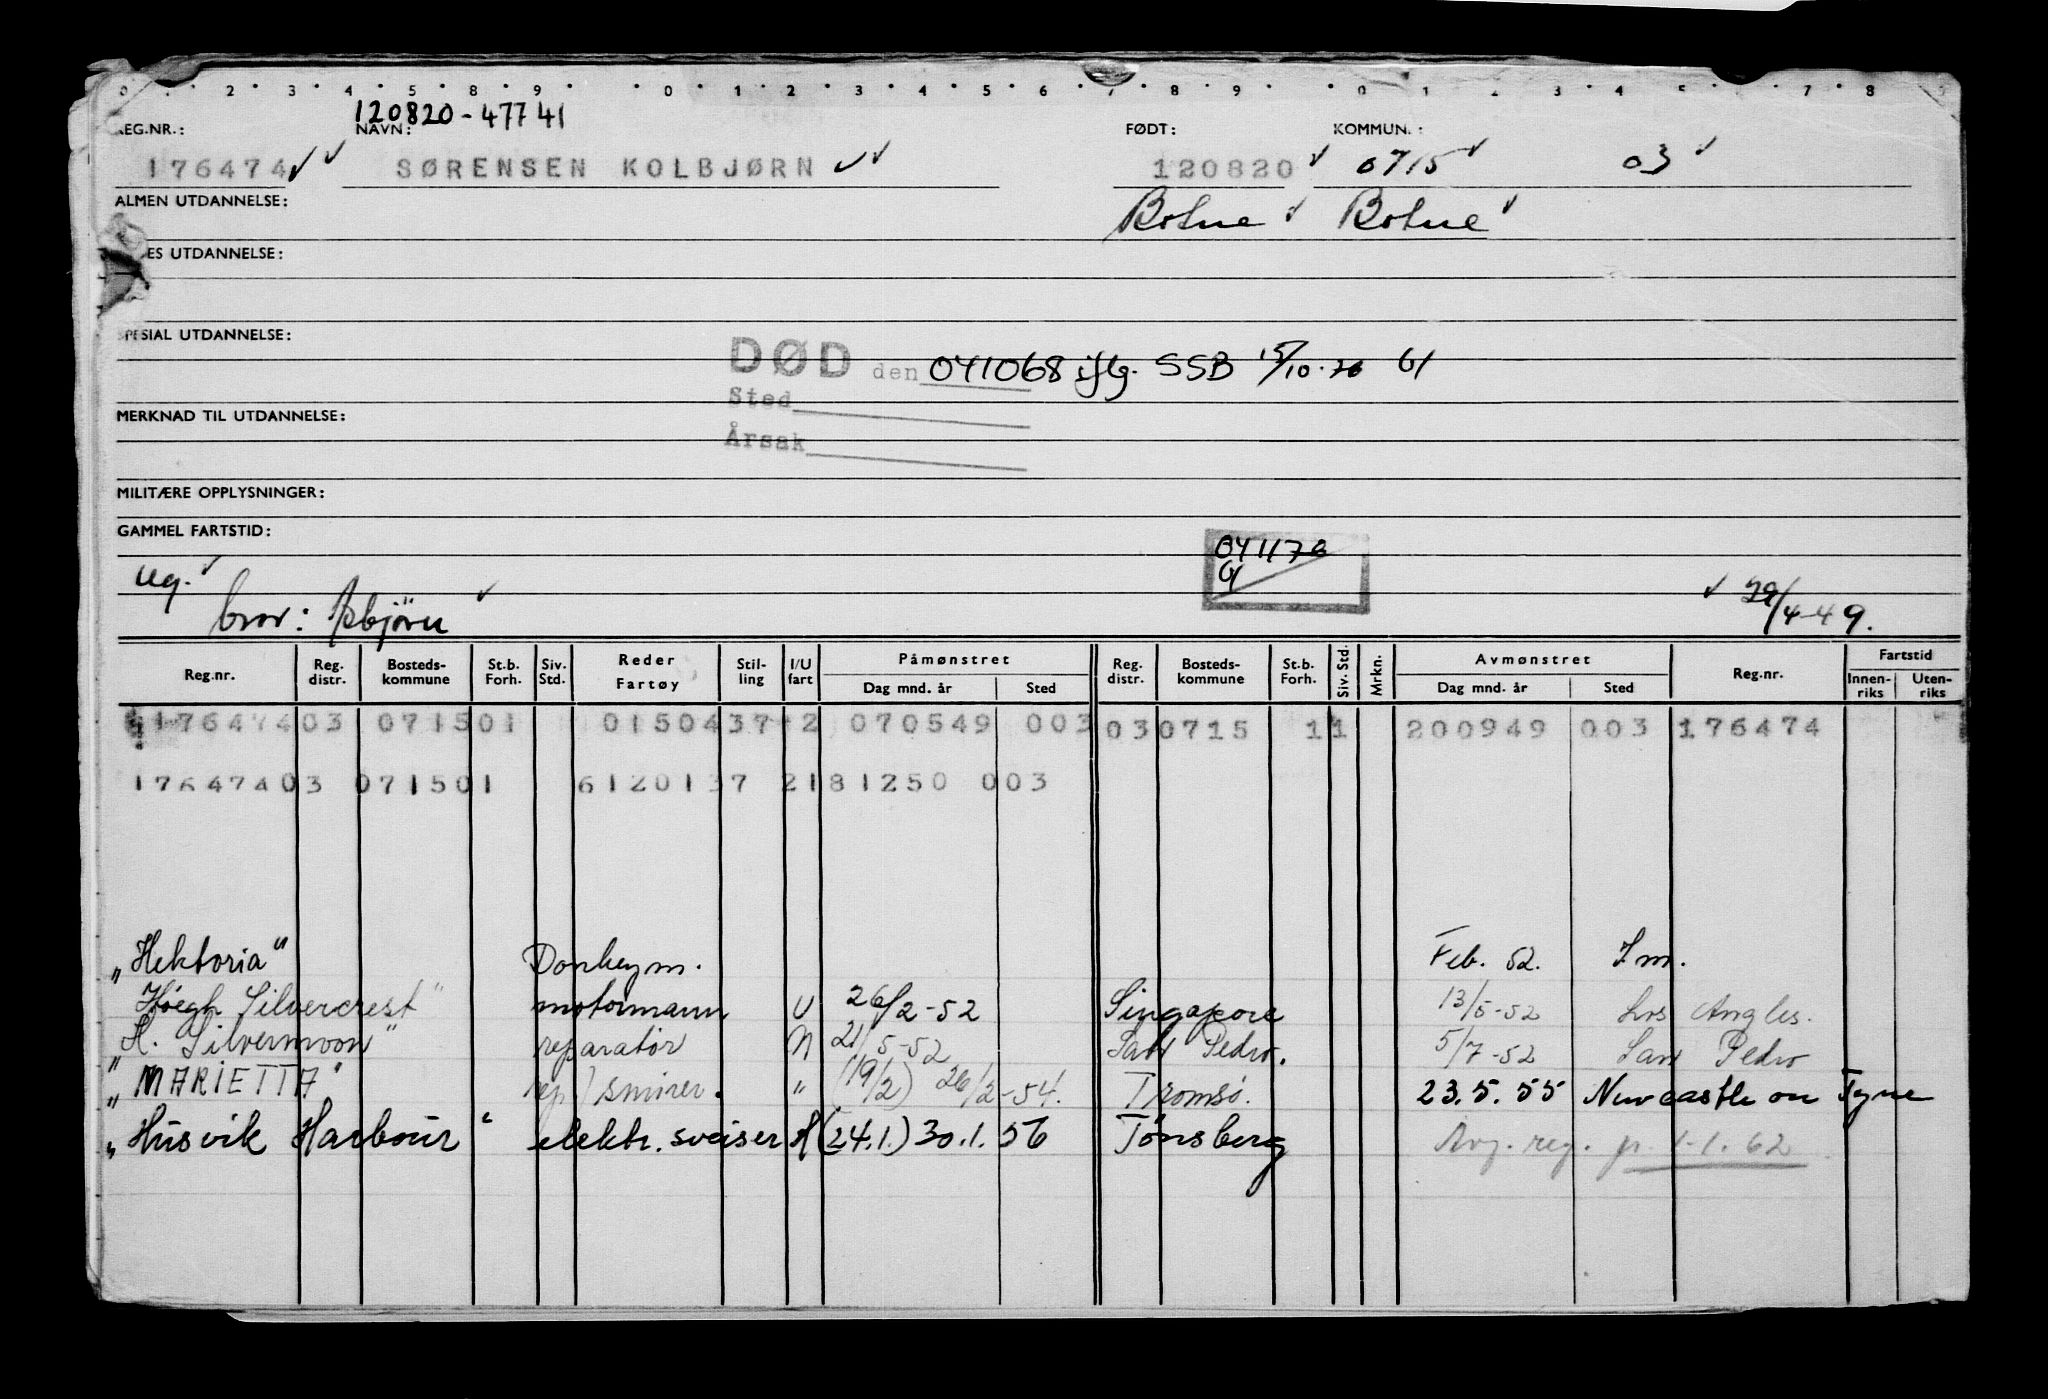 120820-47741
REG.NR.: NAVN: FØDT: KOMMUN.:
176474 SØRENSEN KOLBJØRN 120820 0715 03
ALMEN UTDANNELSE: Botne Botne
UTDANNELSE:
SPESIAL UTDANNELSE:
DØD den 041068 iflg. SSB 15/10.70
Sted
MERKNAD TIL UTDANNELSE:
Årsak
MILITÆRE OPPLYSNINGER:
GAMMEL FARTSTID:
041170
ug.
bror: Asbjörn 29/4-49.
Reg.nr. Reg. distr. Bosteds- kommune St.b. Forh. Siv. Std. Reder Fartøy Stil- ling I/U fart Påmønstret Dag mnd. år Sted Reg. distr. Bosteds- kommune St.b. Forh. Siv. Std. Mrkn. Avmønstret Dag mnd. år Sted Reg.nr. Fartstid Innen- riks Uten- riks
176474 03 0715 01 0150437 2 070549 003 03 0715 11 200949 003 176474
176474 03 0715 01 6120137 2 181250 003
"Hektoria" Donkeym. Feb. 52.
Höegh Silvercrest" motormann U 26/2-52 Singapore 13/5-52 Los Angles.
"H. Silvermoon" reparatör 21/5-52 San Pedro. 5/7-52 San Pedro
"MARIETTA" rep/smörer. " (19/2) 26/2-54. Tromsö. 23.5.55 Newcastle on Tyne
"Husvik Harbour" elektr. sveiser (24.1.) 30.1.56 Tønsberg Avg. reg. pr. 1-1.62